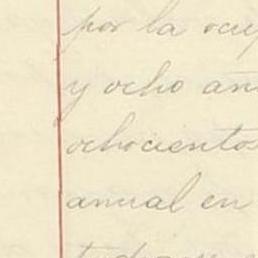 por la ocu
y ocho añ
ochocientos
anual en